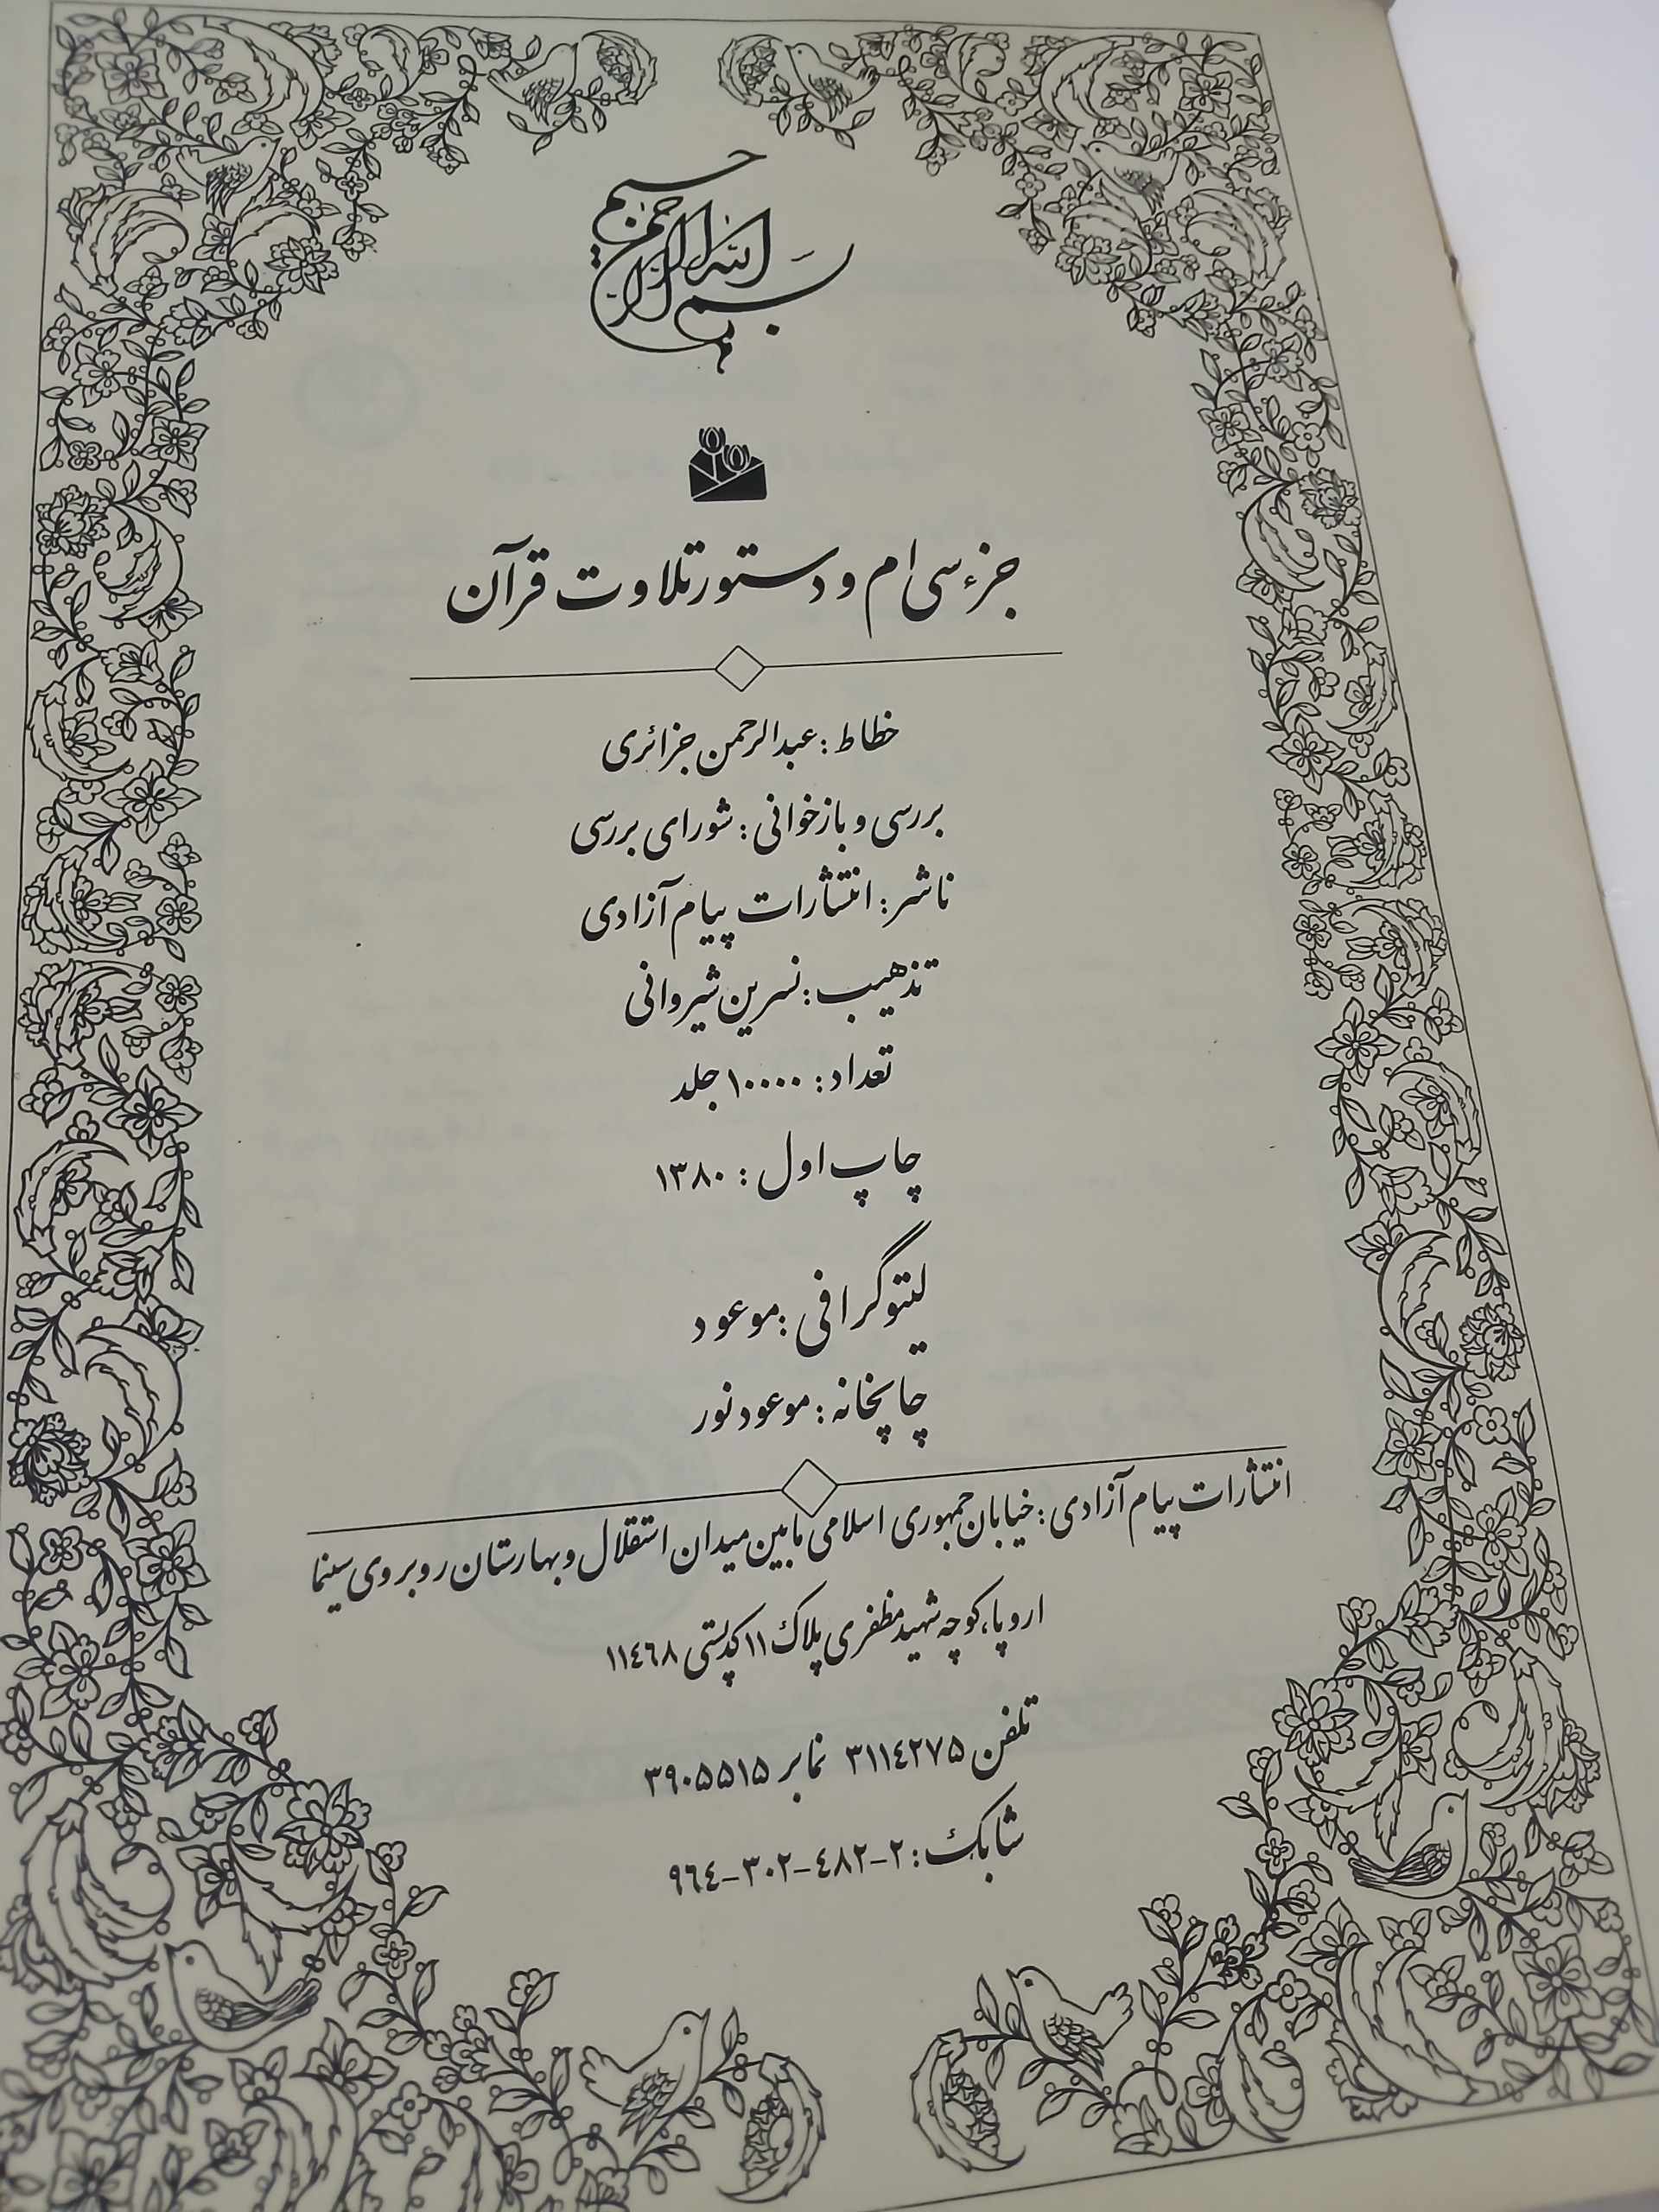 بسم الله الرحمن الرحیم
جزء سی ام و دستور تلاوت قرآن
خطاط : عبدالرحمن جزائری
بررسی و بازخوانی : شورای بررسی
ناشر : انتشارات پیام آزادی
تذهیب : نسرین شیروانی
تعداد : ۱۰۰۰۰ جلد
چاپ اول : ۱۳۸۰
لیتوگرافی : موعود
چاپخانه : موعود نور
انتشارات پیام آزادی : خیابان جمهوری اسلامی مابین میدان استقلال و بهارستان روبروی سینما
اروپا، کوچه شهید مظفری پلاک ۱۱ کد پستی ۱۱٤٦۸
تلفن ۳۱۱٤۲۷۵ نمابر ۳۹۰۵۵۱۵
شابک : ۲-٤۸۲-۳۰۲-۹٦٤